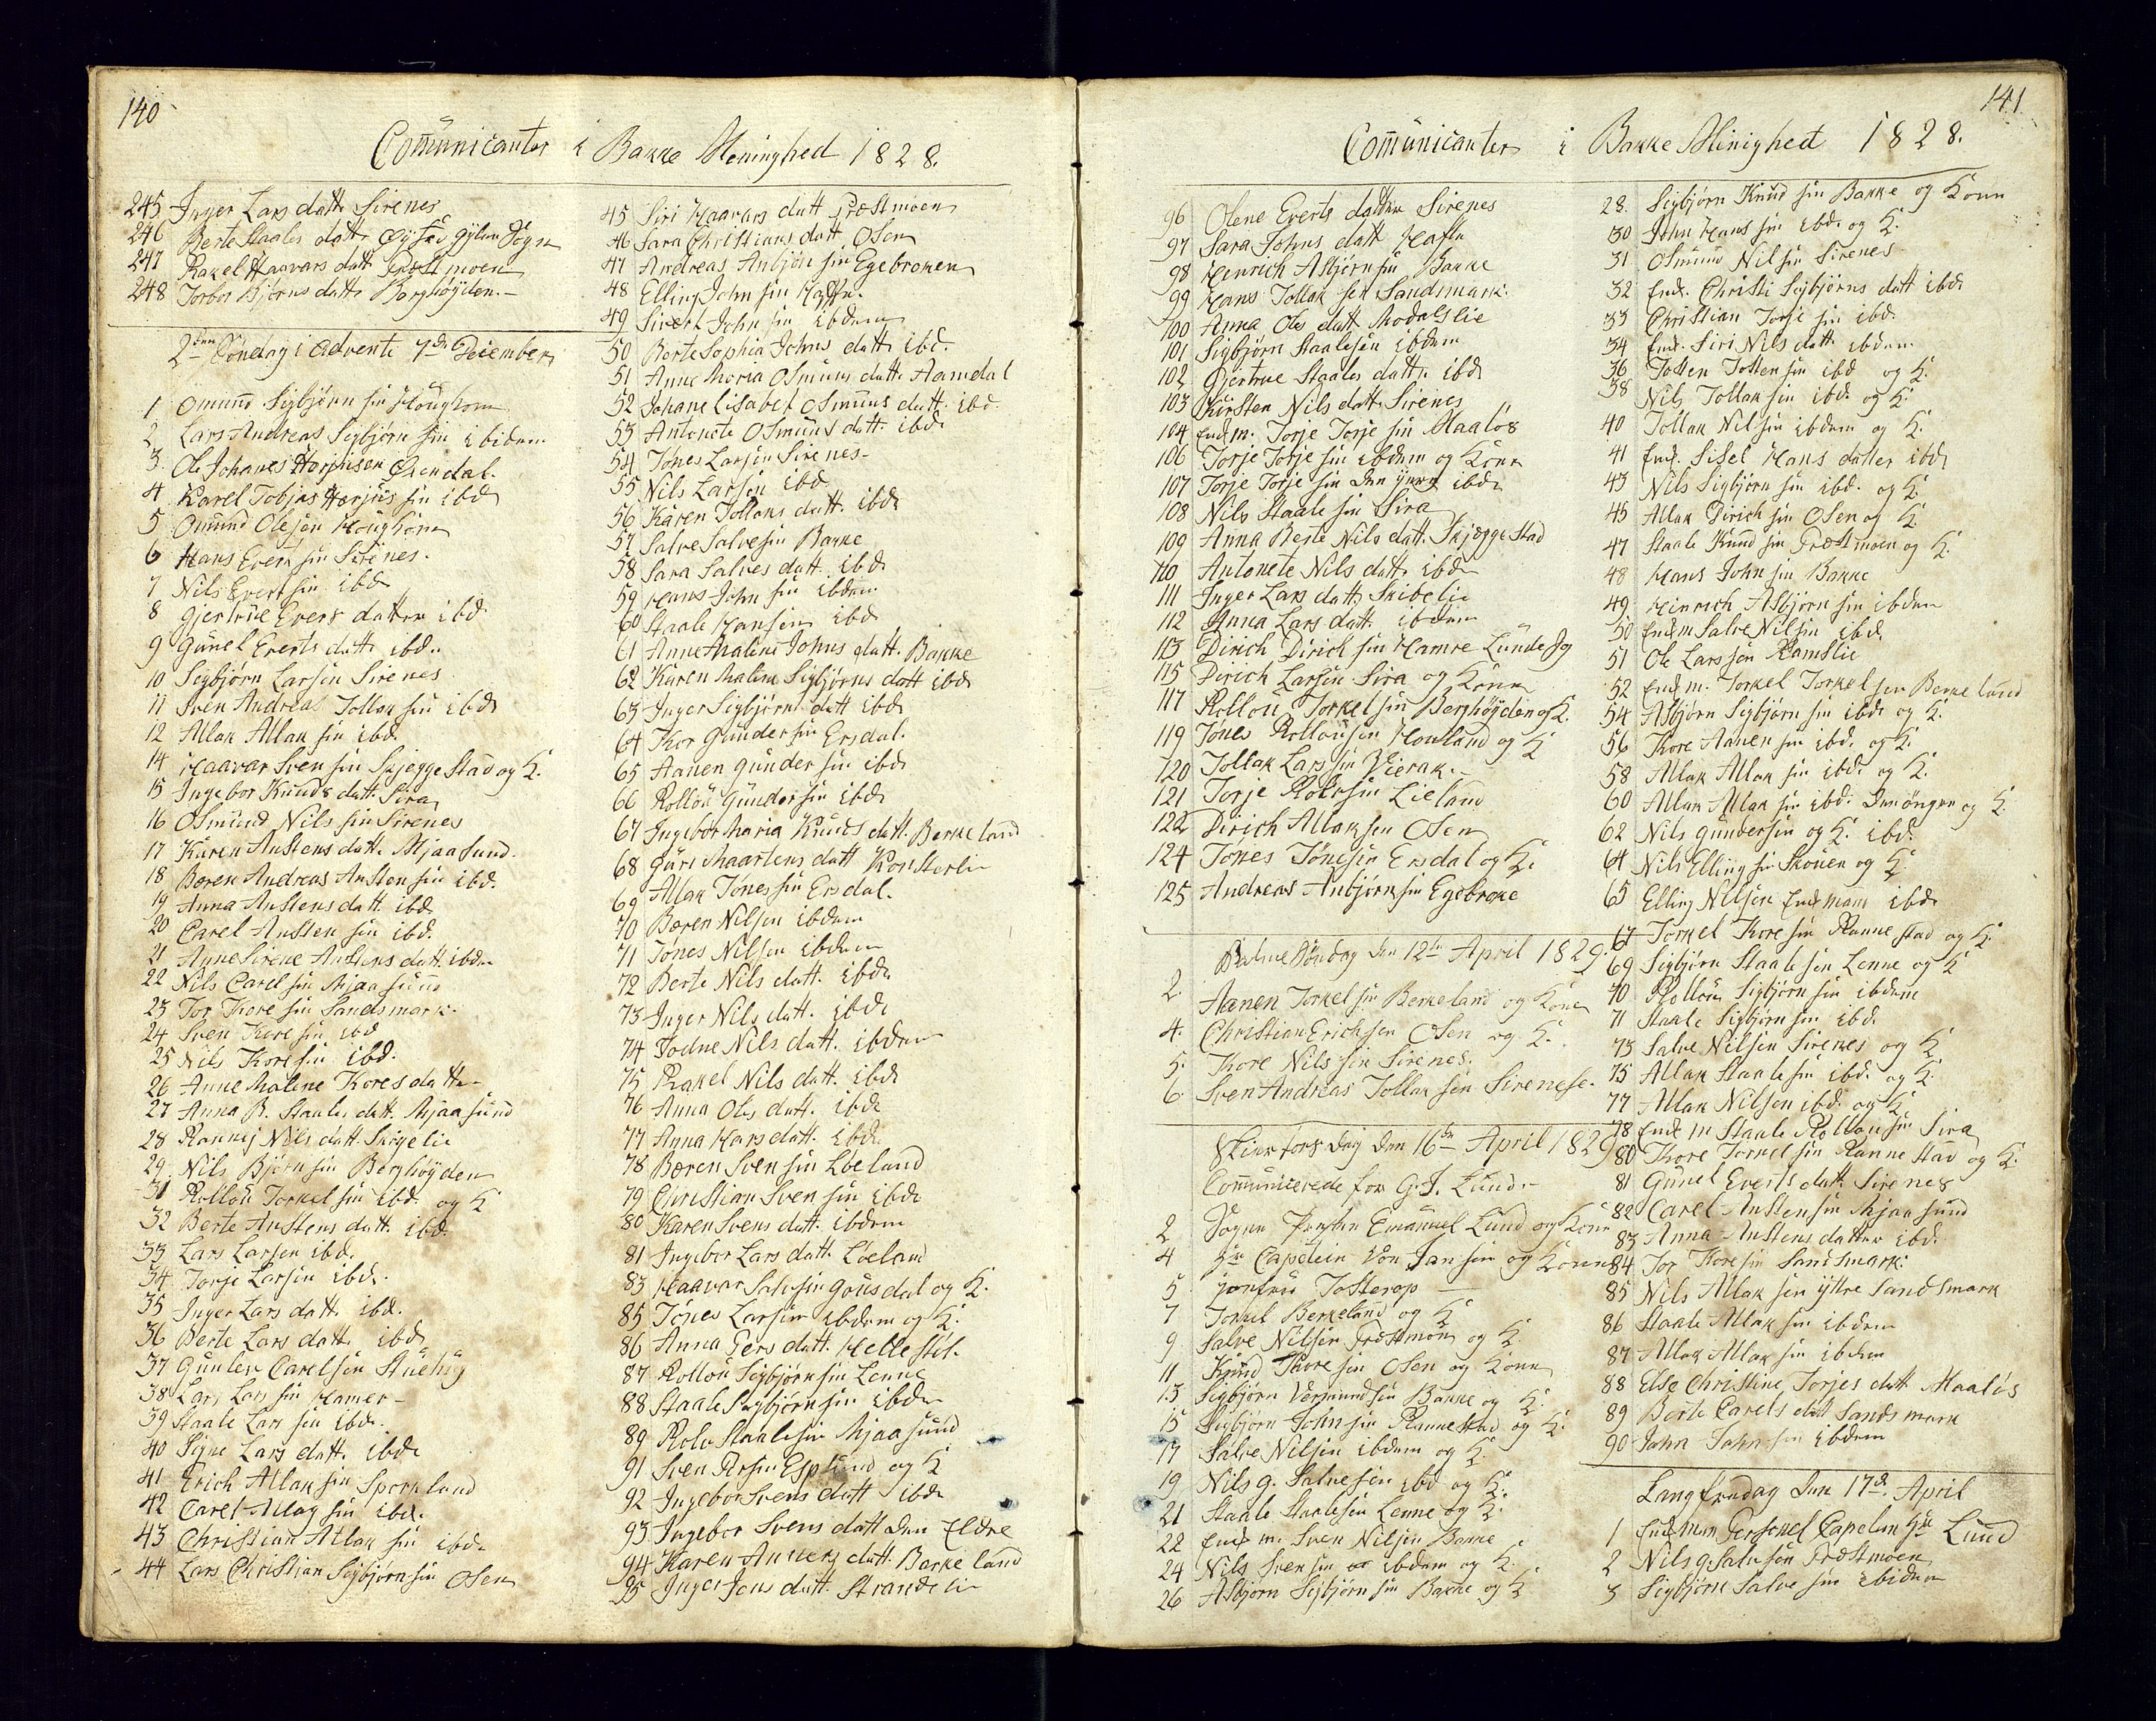 140
Communicanter i Bakke Meninghed 1828.
245 Inger Lars datt. Sirenes
246 Berte Staales datt. Øysæ Gylan Sogn
247 Rakel Haavars datt. Præstmoen
248 Torbor Bjørns datt. Berghøyden.-
2den Søndag i Advente 7de December
1 Omund Sigbjørn sin Houghom
2 Lars Andreas Sigbjørn sin ibidem
3. Ole Johanes Øxendal.
4 Karel Tobjas sin ibd
5 Omund Olesen Houghom
6 Hans Evert sin Sirenes.
7 Nils Evert sin ibd
8 Gjertrue Evers datter ibd
9 Gunel Everts datt. ibd.
10 Sigbjørn Larsen Sirenes
11 Sven Andreas Tollak sin ibd
12 Atlak Atlak sin ibd.
14 Haavar Sven sin Skjeggestad og K.
15 Ingebor Knuds datt. Sira
16 Osmund Nils sin Sirenes
17 Karen Austens datt. Mjaasund.
18 Beren Andreas Austen sin ibd.
19 Anna Austens datt. ibd
20 Carel Austen sin ibd.
21 Anne Sirene Austens datt. ibdn
22 Nils Carel sin Mjaasund
23 Tor Kore sin Sandsmark.
24 Sven Kore sin ibd
25 Nils Kore sin ibd.
26 Anne Malene Kores datter
27 Anna B. Staales datt. Mjaasund
28 Rannej Nils datt. Skigelie
29 Nils Bjørn sin Berghøyden
31 Rollou Torkel sin ibd. og K
32 Berte Austens datt. ibd.
33 Lars Larsen ibd.
34 Torje Larsin ibd.
35 Inger Lars datt. ibd.
36 Berte Lars datt. ibd
37 Gunler Carelsen
38 Lars Lars sin Hamer-
39 Staale Lars sin ibd.
40 Signe Lars datt. ibd
41 Erich Atlak sin Sporkland
42 Carel Atlag sin ibd.
43 Christian Atlak sin ibd.
44 Lars Christian Sigbjørn sin Osen
45 Siri Haavars datt Præstmoen
46 Sara Christians datt. Osen
47 Andreas Anbjørn sin Egebroken
48 Elling John sin Hafte.
49 Sivert John sin ibdem
50 Berte Sophia Johns datt. ibd.
51 Anne Maria Osmuns datt. Aamdal
52 Johane Lisabet Osmuns datt. ibd.
53 Antonete Osmuns datt. ibd
54 Tønes Larsin Sirenes-
55 Nils Larsen ibd
56 Karen Tollaks datt. ibd
57 Salve Salvesin Bakke
58 Sara Salves datt. ibd
59 Hans John sin ibdem
60 Staale Hansen ibd
61 Anne Malene Johns datt. Bakke
62 Karen Malene Sigbjørns datt ibd
63 Inger Sigbjørns datt ibd
64 Kor Gunder sin Ersdal.
65 Aanen Gunder sin ibd
66 Rollou Gunder sin ibd
67 Ingebor Maria Knuds datt. Berkeland
68 Guri Maartens datt
69 Atlak Tønes sin Ersdal.
70 Beren Nilsen ibdem
71 Tønes Nilsen ibdem
72 Berte Nils datt. ibd
73 Inger Nils datt. ibd
74 Todne Nils datt. ibdem
75 Rakel Nils datt. ibd
76 Anna Ols datt. ibd
77 Anna Hans datt. ibd
78 Beren Sven sin Løeland
79 Christian Sven sin ibd
80 Karen Svens datt. ibdem
81 Ingebor Lars datt. Løeland
83 Haavar Salvesin Gousdal og K.
85 Tønes Larsin ibdem og K.
86 Anna Pers datt. Hellestøl.
87 Rollou Sigbjørn sin Lenne
88 Staale Sigbjørn sin ibdn
89 Rolv Staalesin Mjaasund
91 Sven Persin Esplund og K
92 Ingebor Svens datt ibd
93 Ingebor Svens datt den Eldre
94 Karen Anders datt. Berkeland
95 Inger Jens datt. Strandelie
141
Communicanter i Bakke Minighed 1828.
96. Olene Everts datter Sirenes
97 Sara Johns datt Hafte
98 Henrich Asbjørn sin Bakke
99 Hans Tollak sen Sandsmark.
100 Anna Ols datt. Modalslie
101 Sigbjørn Staalesen ibdem
102 Gjertrue Staales datt. ibd
103 Kirsten Nils datt. Sirenes
104 Enkm. Torje Torje sin Maaløs
106 Torje Torje sin ibdem og Kone
107 Torje Torje sin den yngr ibd
108 Nils Staale sin Sira
109 Anna Berte Nils datt. Skjæggestad
110 Antonete Nils datt. ibdn
111 Inger Lars datt. Skibelie
112 Anna Lars datt. ibdem
113 Dirich Dirich sin Hamre Lunde Sg
115 Dirich Larsen Sira og Kone
117 Rollou Torkel sin Berghøyden og K.
119 Tønes Rollousen Houland og K
120 Tollak Lars sin Vierak.-
121 Torje Rolvsin Lieland
122 Dirich Atlaksen Osen
124 Tønes Tønesin Ersdal og K.
125 Andreas Anbjørn sin Egebroke
Palme Søndag den 12te April 1829.
2. Aanen Torkel sin Berkeland og Kone
4. Christian Erichsen Osen og K.
5. Kore Nils sin Sirenes.
6. Sven Andreas Tollak sen Sirenes.
Skiertorsdag den 16de April 1829
Communicerede for G. J. Lund.-
2 Sogne Presten Emanuel Lund og Kone
4 Hr. Capelein Von Jansin og Konen
5 Jomfru Tosterop
7 Torkel Berkeland og K
9 Salve Nilsen Præstmoen og K
11 Knud Thore sin Osen og Kone
13 Sigbjørn Vermundsin Bakke og K.
15 Sigbjørn John sin Rannestad og K.
17 Salve Nilsin ibdem og K.
19 Nils G. Salvesen ibd og K.
21 Staale Staalesen Lenne og K.
22 Enk m. Sven Nilsen Bakke
24 Nils Sven sin ibdem og K.
26 Asbjørn Sigbjørn sin Bakke og K
28. Sigbjørn Knud sin Bakke og Kone
30 John Hans sin ibd. og K.
31 Osmund Nilsin Sirenes
32 Enk. Christi Sigbjørns datt ibd
33 Christian Torje sin ibd.
34 Enk. Siri Nils datt. ibdem
36 Tosten Tosten sin ibd og K.
38 Nils Tollak sin ibd. og K
40 Tollak Nilsin ibdem og K.
41 Enk. Sisel Hans datter ibd
43 Nils Sigbjørn sin ibd. og K
45 Atlak Dirich sin Osen og K
47 Staale Knud sin Præstmoen og K.
48 Hans John sin Bakke
49 Hinrich Asbjørn sin ibdem
50 Enkm Salve Nilsin ibd
51 Ole Larssen Ramslie
52 Enk m. Torkel Torkelsen Berkeland
54 Asbjørn Sigbjørn sin ibd og K.
56 Kore Aanen sin ibd. og K.
58 Atlak Atlak sin ibd. og K.
60 Atlak Atlak sin ibd. den øngre og K.
62 Nils Gundersin og K. ibd.
64 Nils Elling sin Skouen og K
65 Elling Nilsen Enkmann ibd
67 Torkel Kore sin Rannestad og K.
69 Sigbjørn Staale sin Lenne og K
70 Rollou Sigbjørn sin ibdem
71 Staale Sigbjørn sin ibd.
73 Salve Nilsen Sirenes og K
75 Atlak Staale sin ibd. og K.
77 Atlak Nilsen ibd. og K
78 Enk m Staale Rollou sin Sira
80 Kore Torkel sin Rannestad og K.
81 Gunel Everts datt. Sirenes
82 Carel Austensin Mjaasund
83 Anna Austens datter ibd.
84 Tor Kore sin Sandsmark.
85 Nils Atlak sin yttre Sandsmark
86 Staale Atlak sin ibdem
87 Atlak Atlak sin ibdem
88 Else Christine Torjes datt Maaløs
89 Berte Carels datt Sandsmark
90 John John sin ibdem
Langfredag den 17de April
1 Enkman Personel Capelan Hr. Lund
2 Nils G. Salvesen Præstmoen
3 Sigbjørn Salve sin ibidem